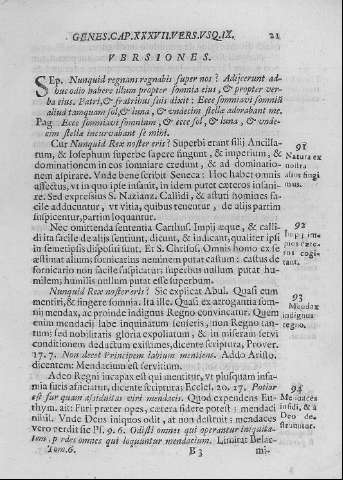 GENES.CAP.XXXVII.VERS.VSQ.IX. 21
VERSIONES.
SEp. Nunquid regnans regnabis super nos? Adjecerunt ad-
huc odio habere illum propter somnia eius, & propter ver-
ba eius. Patri, & fratribus suis dixit: Ecce somniavi somniũ
aliud tamquam sol, & luna, & undecim stellæ adorabant me.
Pag. Ecce somniavi somnium, & ecce sol, & luna, & unde-
cim stellæ incurvabant se mihi.
Cur Nunquid Rex noster eris? Superbi erant filij Ancilla-
rum, & Iosephum superbe sapere fingunt, & imperium, &
dominationem in eos somniare credunt, & ad dominatio-
nem aspirare. Vnde bene scribit Seneca: Hoc habet omnis
affectus, vt in quo ipse insanit, in idem putet cæteros insani-
re. Sed expressius S. Nazianz. Callidi, & astuti homines fa-
cile adducuntur, vt vitia, quibus tenentur, de alijs partim
suspicentur, partim loquantur.
91
Natura ex
nostra
alios fingi
mus.
Nec omittenda sententia Carthus. Impij æque, & calli-
di ita facile de alijs sentiunt, dicunt, & iudicant, qualiter ipsi
in semetipsis dispositi sunt. Et S. Chrysos. Omnis homo ex se
æstimat alium: fornicarius neminem putat castum: castus de
fornicario non facile suspicatur: superbus nullum putat hu-
milem; humilis nullum putat esse superbum.
92
Impij im-
pios cæte-
ros cogi
tant.
Nunquid Rex noster eris? Sic explicat Abul. Quasi eum
mentiri, & fingere somnia. Ita ille. Quasi ex arrogantia som-
nij mendax, ac proinde indignus Regno convincatur. Quem
enim mendacij labe inquinatum senseris, non Regno tan-
tum; sed nobilitatis gloria expoliatum, & in miseram servi
conditionem dedactum existimes, dicente Scriptura, Prover.
17. 7. Non decet Principem labium mentiens. Addo Aristo.
dicentem: Mendacium est servitium.
93
Mendax
indignus
regno.
Adeo Regni incapax est qui mentitur, vt plusquam infa-
mia furis afficiatur, dicente scriptura; Ecclef. 20. 17. Potior
est fur quam assiduitas viri mendacis. Quod expendens Eu-
thym. ait: Furi præter opes, cætera fidere potest: mendaci
nihil. Vnde Deus iniquos odit, at non destruit: mendaces
vero perdit sic Ps. 9. 6. Odisti omnes qui operantur iniquita-
tem, perdes omnes qui loquuntur mendacium. Limitat Belac-
94
Mendaces
infidi, & à
Deo de-
struuntur.
Tom.6. B 3 mi-